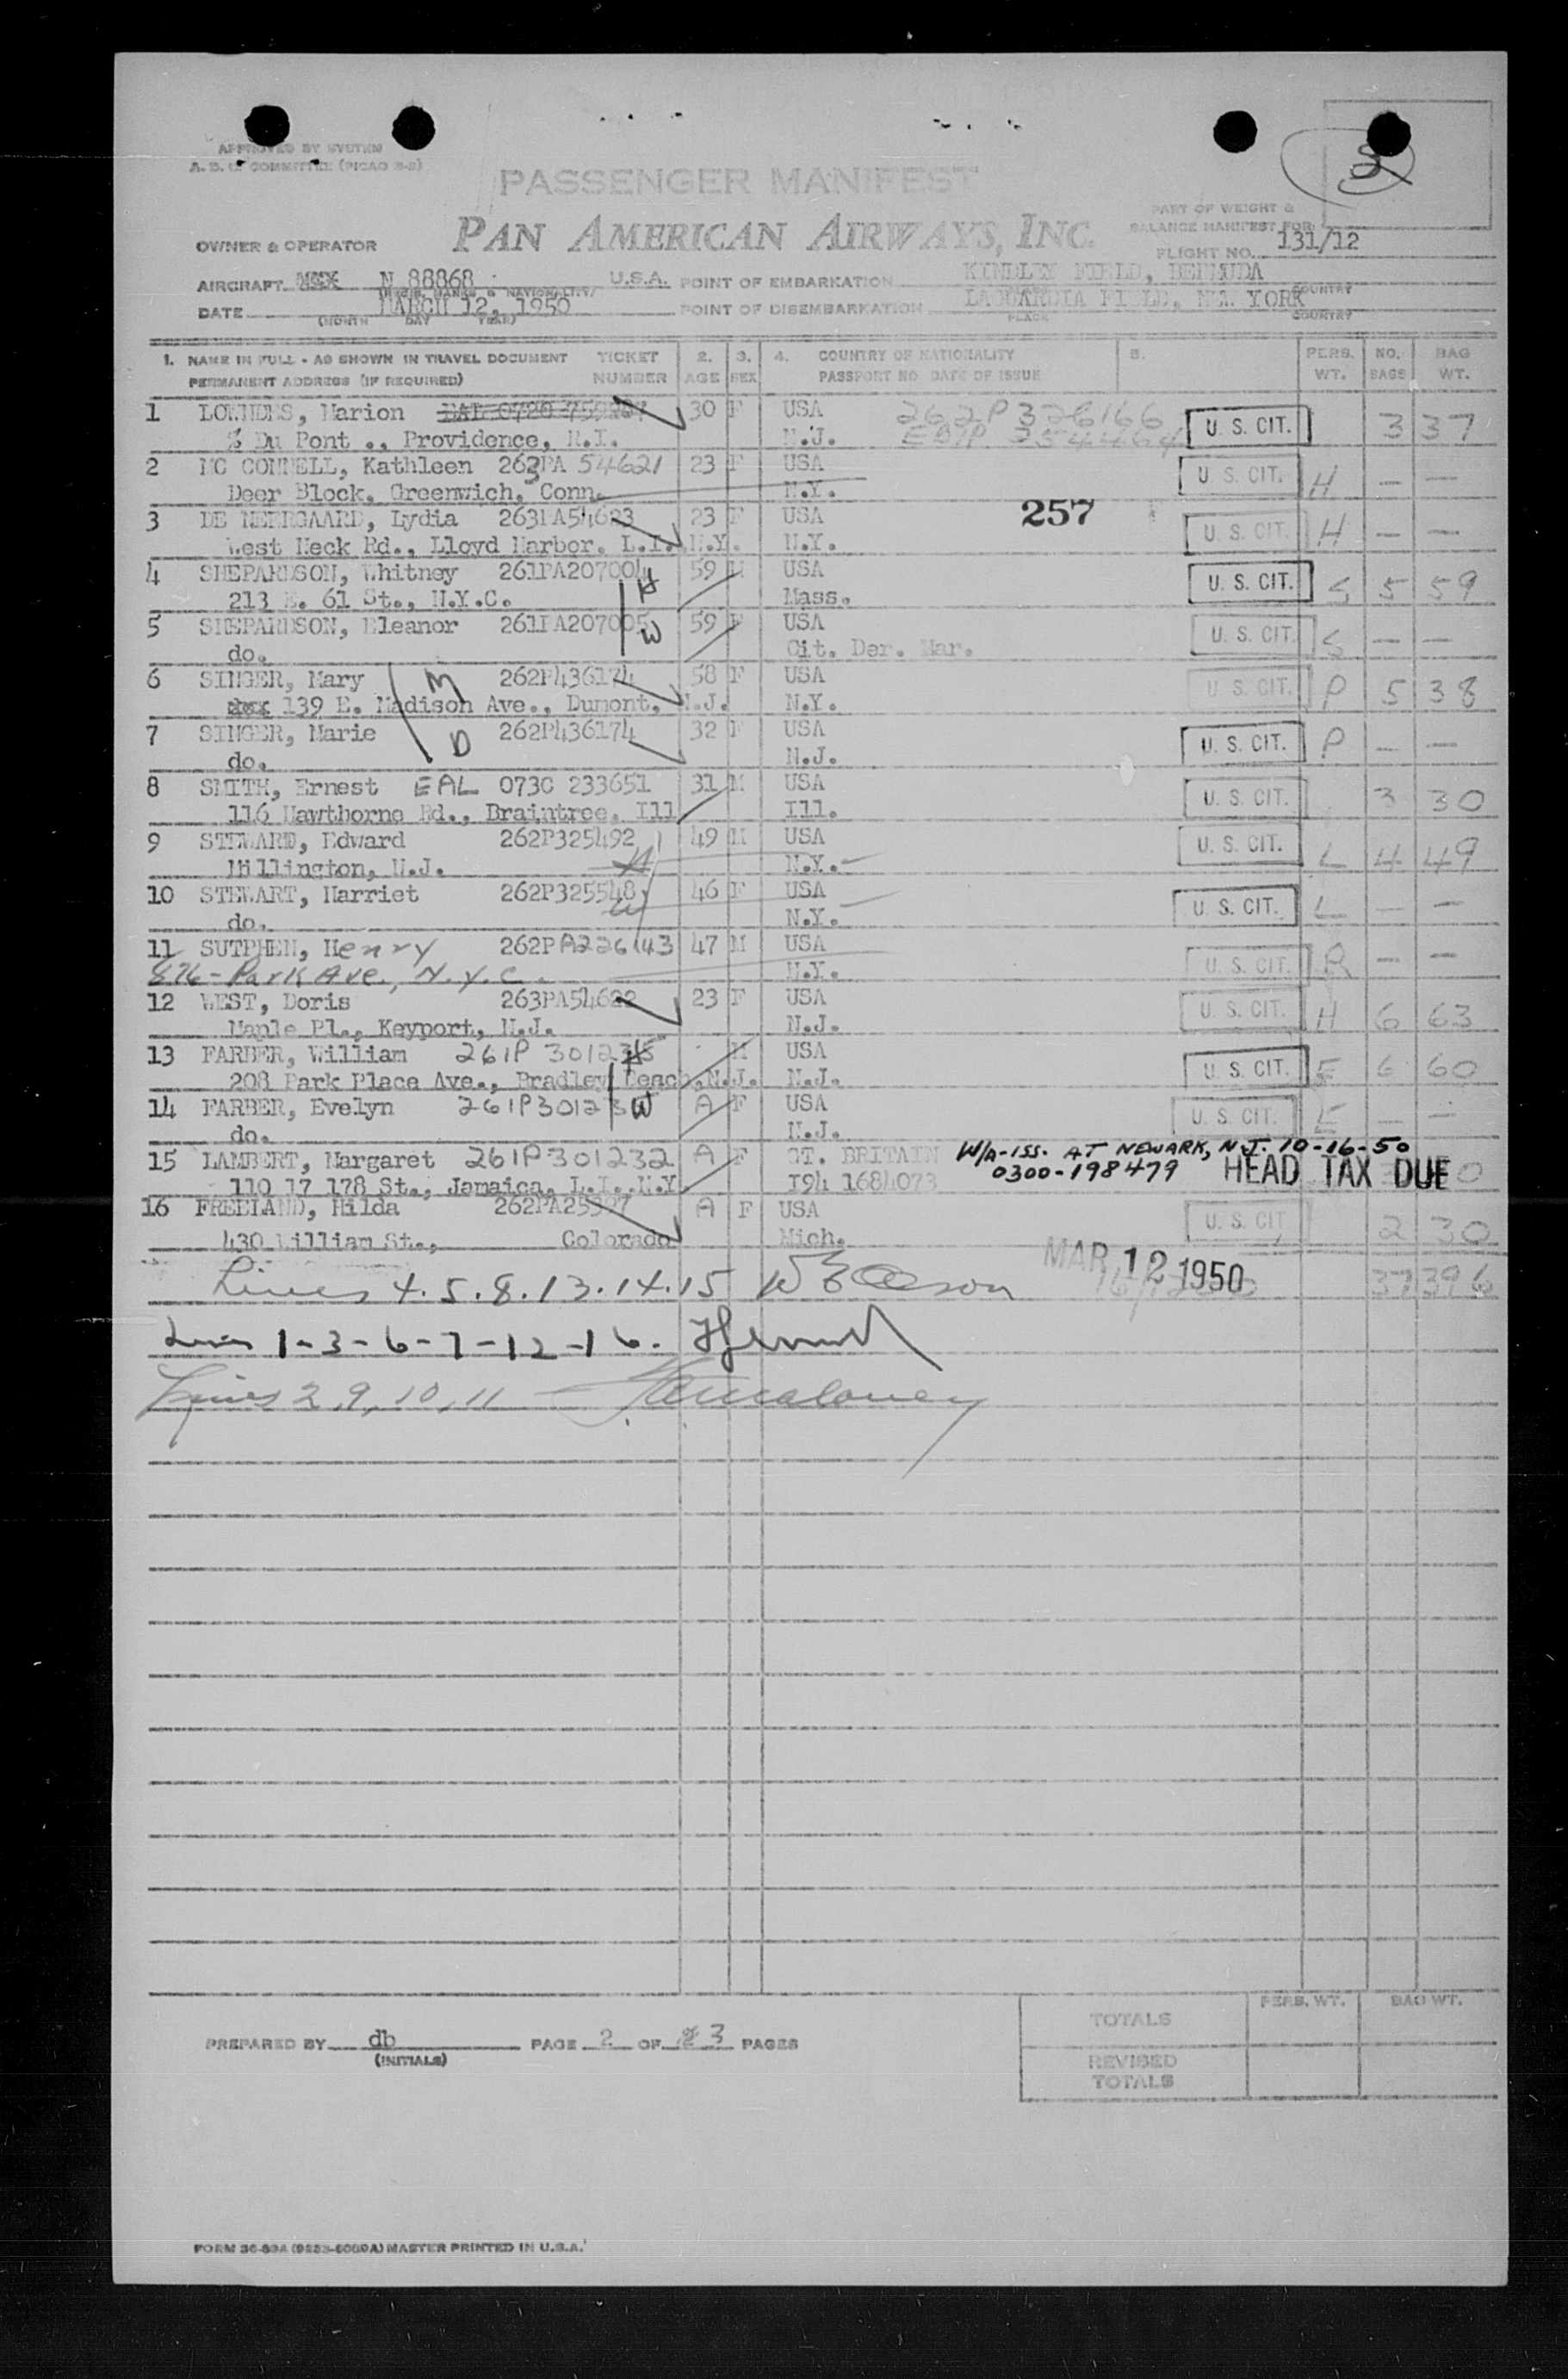 APPROVED BY SYSTEM
A. D. C. COMMITTEE (PICAO 2-2)
PASSENGER MANIFEST
PAN AMERICAN AIRWAYS, INC.
PART OF WEIGHT &
BALANCE MANIFEST FOR
FLIGHT NO. 131/12
OWNER & OPERATOR
AIRCRAFT N 88868 U.S.A. POINT OF EMBARKATION KINDLEY FIELD, BERMUDA
DATE MARCH 12, 1950 POINT OF DISEMBARKATION LAGUARDIA FIELD, NEW YORK
(MONTH DAY YEAR) PLACE COUNTRY
1. NAME IN FULL - AS SHOWN IN TRAVEL DOCUMENT TICKET 2. 3. 4. COUNTRY OF NATIONALITY 5. PERS. NO. BAG
PERMANENT ADDRESS (IF REQUIRED) NUMBER AGE SEX PASSPORT NO DATE OF ISSUE WT. BAGS WT.
1 LOWNDES, Marion 30 F USA 262P326166 U. S. CIT. 3 37
% Du Pont ., Providence, R.I. N.J.
2 MC CONNELL, Kathleen 263PA 54621 23 F USA U. S. CIT. H — —
Deer Block, Greenwich, Conn. N.Y.
3 DE NEERGAARD, Lydia 263PA54623 23 F USA 257 U. S. CIT. H — —
West Neck Rd., Lloyd Harbor, L.I. N.Y. N.Y.
4 SHEPARDSON, Whitney 261PA207004 H 59 M USA U. S. CIT. S 5 59
213 E. 61 St., N.Y.C. Mass.
5 SHEPARDSON, Eleanor 261PA207005 W 59 F USA U. S. CIT. S — —
do. Cit. Der. Mar.
6 SINGER, Mary M 262P436174 58 F USA U. S. CIT. P 5 38
139 E. Madison Ave., Dumont, N.J. N.Y.
7 SINGER, Marie D 262P436174 32 F USA U. S. CIT. P — —
do. N.J.
8 SMITH, Ernest EAL 073C 233651 31 M USA U. S. CIT. 3 30
116 Hawthorne Rd., Braintree, Ill Ill.
9 STEWARD, Edward 262P325492 49 M USA U. S. CIT. L 4 49
Millington, N.J. H N.Y.
10 STEWART, Harriet 262P325548 46 F USA U. S. CIT. L — —
do. W N.Y.
11 SUTPHEN, Henry 262PA226143 47 M USA U. S. CIT. R — —
876 - Park Ave., N.Y.C. N.Y.
12 WEST, Doris 263PA54622 23 F USA U. S. CIT. H 6 63
Maple Pl., Keyport, N.J. N.J.
13 FARBER, William 261P 30123 H M USA U. S. CIT. E 6 60
208 Park Place Ave., Bradley Beach, N.J. N.J.
14 FARBER, Evelyn 261P30123 W A F USA U. S. CIT. E — —
do. N.J.
15 LAMBERT, Margaret 261P301232 A F GT. BRITAIN W/A-ISS. AT NEWARK, N.J. 10-16-50
110 17 178 St., Jamaica, L.I. N.Y. I94 1684073 0300-198479 HEAD TAX DUE
16 FREELAND, Hilda 262PA25 A F USA U. S. CIT 2 30
430 William St., Colorado Mich.
MAR 12 1950 37 396
Lines 4.5.8.13.14.15
Lines 1-3-6-7-12-16.
Lines 2,9,10,11
TOTALS PERS. WT. BAG WT.
REVISED
TOTALS
PREPARED BY db PAGE 2 OF 3 PAGES
(INITIALS)
FORM 36-89A MASTER PRINTED IN U.S.A.